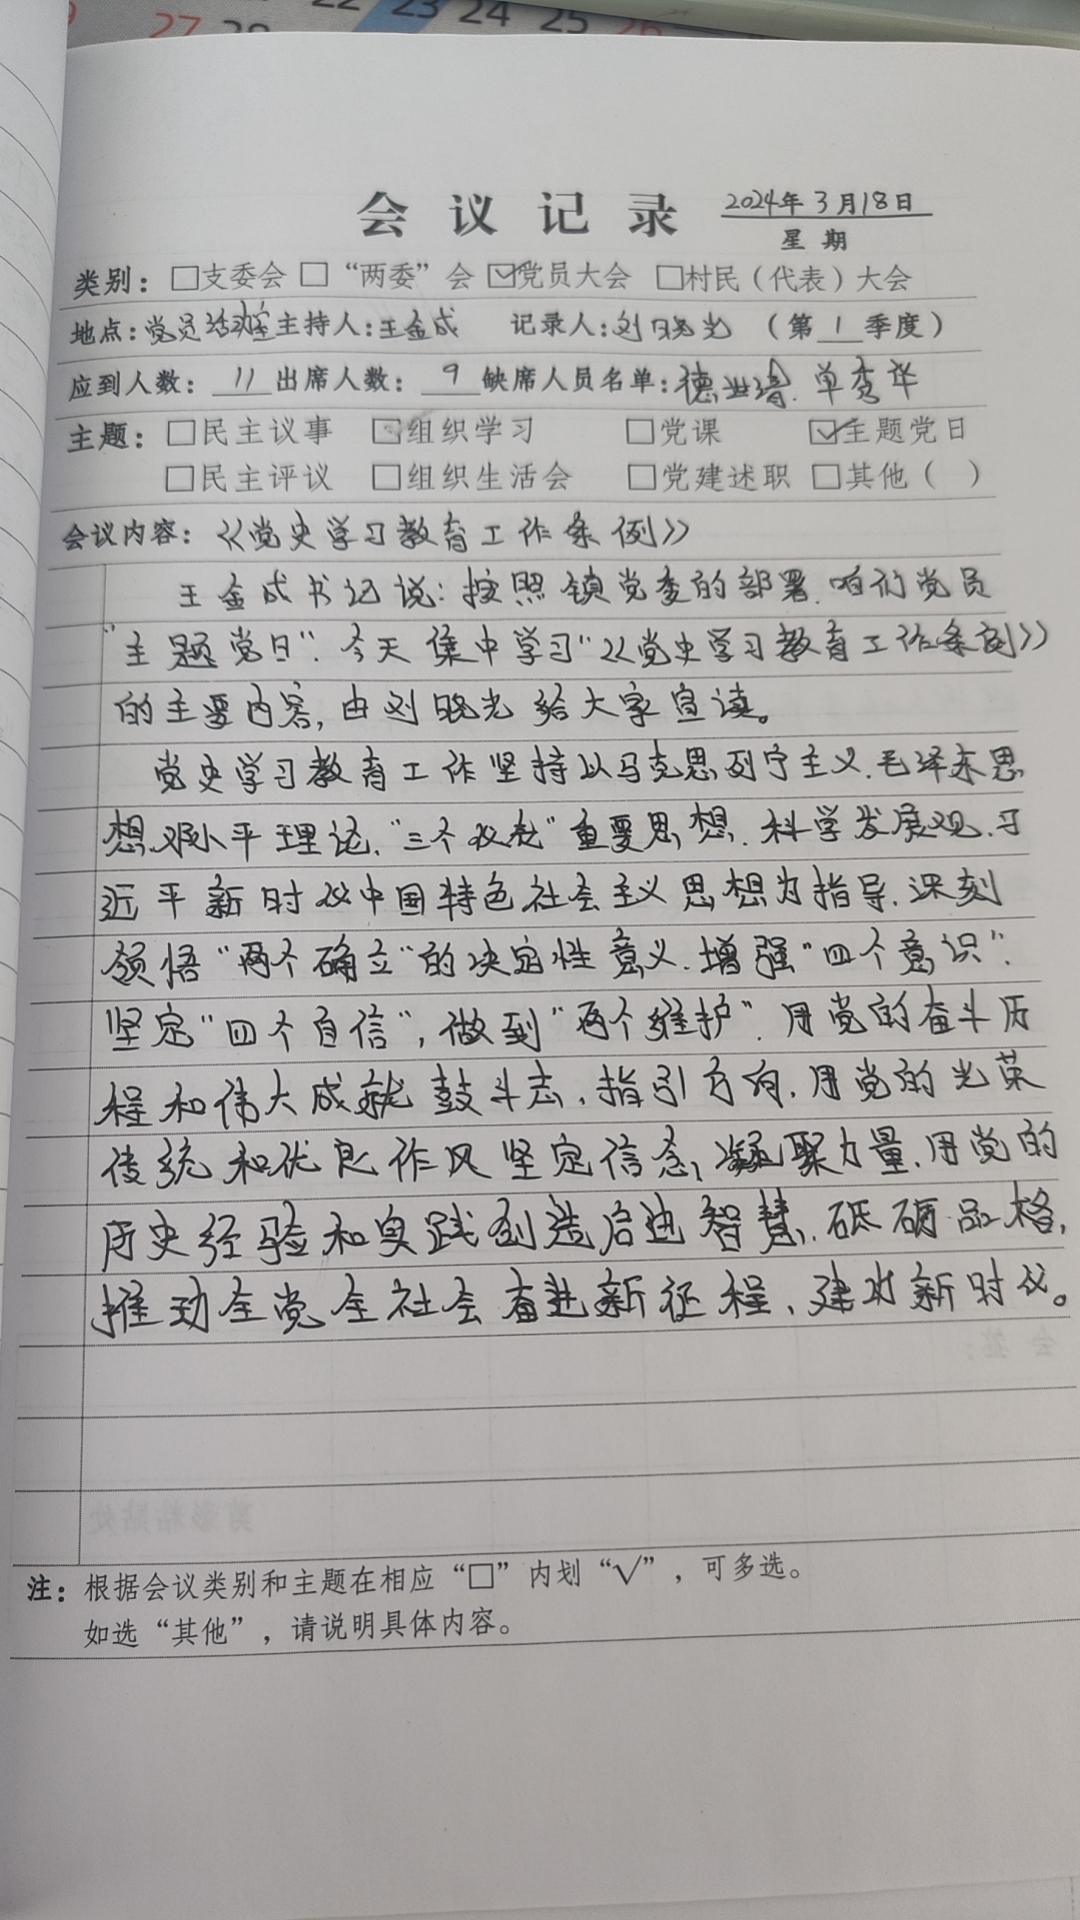 27 28 22 23 24 25 26
会议记录 2024年3月18日
星期
类别：□支委会 □“两委”会 ☑党员大会 □村民（代表）大会
地点：党员活动室 主持人：王金成 记录人：刘晓光 （第1季度）
应到人数：11 出席人数：9 缺席人员名单：德业 单秀华
主题：□民主议事 □组织学习 □党课 ☑主题党日
□民主评议 □组织生活会 □党建述职 □其他（ ）
会议内容：《党史学习教育工作条例》
王金成书记说：按照镇党委的部署，咱们党员
“主题党日”，今天集中学习“《党史学习教育工作条例》
的主要内容，由刘晓光给大家宣读。
党史学习教育工作坚持以马克思列宁主义、毛泽东思
想、邓小平理论、“三个代表”重要思想、科学发展观、习
近平新时代中国特色社会主义思想为指导，深刻
领悟“两个确立”的决定性意义，增强“四个意识”，
坚定“四个自信”，做到“两个维护”，用党的奋斗历
程和伟大成就鼓斗志、指引方向，用党的光荣
传统和优良作风坚定信念、凝聚力量，用党的
历史经验和实践创造启迪智慧、砥砺品格，
推动全党全社会奋进新征程、建功新时代。
注：根据会议类别和主题在相应“□”内划“√”，可多选。
如选“其他”，请说明具体内容。